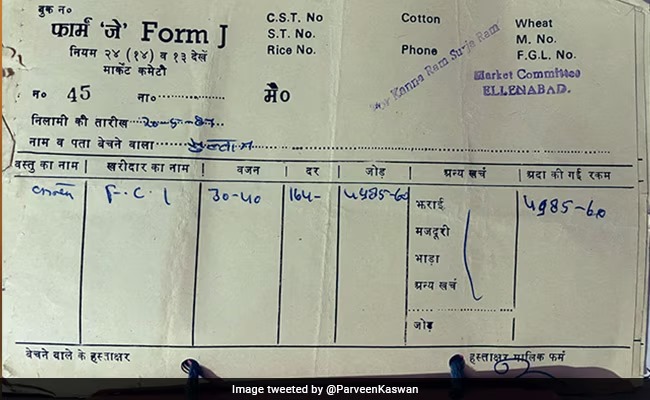 बुक न०
फार्म 'जे' Form J
नियम २४ (१४) व १३ देखें
मार्केट कमेटी
C.S.T. No
S.T. No.
Rice No.
Cotton
Phone
Wheat
M. No.
F.G.L. No.
Kanna Ram Surja Ram
Market Committee
ELLENABAD.
न० 45 ना० मै०
निलामी की तारीख
नाम व पता बेचने वाला
वस्तु का नाम | खरीदार का नाम | वजन | दर | जोड़ | अन्य खर्च | अदा की गई रकम
F.C.I 30-40 164-
भराई
मजदूरी
भाड़ा
अन्य खर्च
जोड़
बेचने वाले के हस्ताक्षर
हस्ताक्षर मालिक फर्म
Image tweeted by @ParveenKaswan